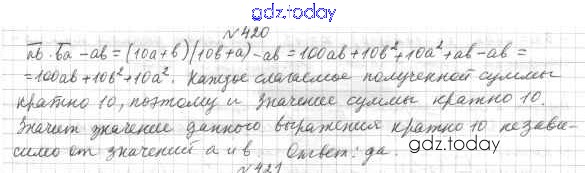 gdz.today
№420
ab·ba-ab=(10a+b)(10b+a)-ab=100ab+10b²+10a²+ab-ab=
=100ab+10b²+10a². Каждое слагаемое полученной суммы
кратно 10, поэтому и значение суммы кратно 10.
Значит значение данного выражения кратно 10 незави-
симо от значений a и b. Ответ: да.
gdz.today
№421